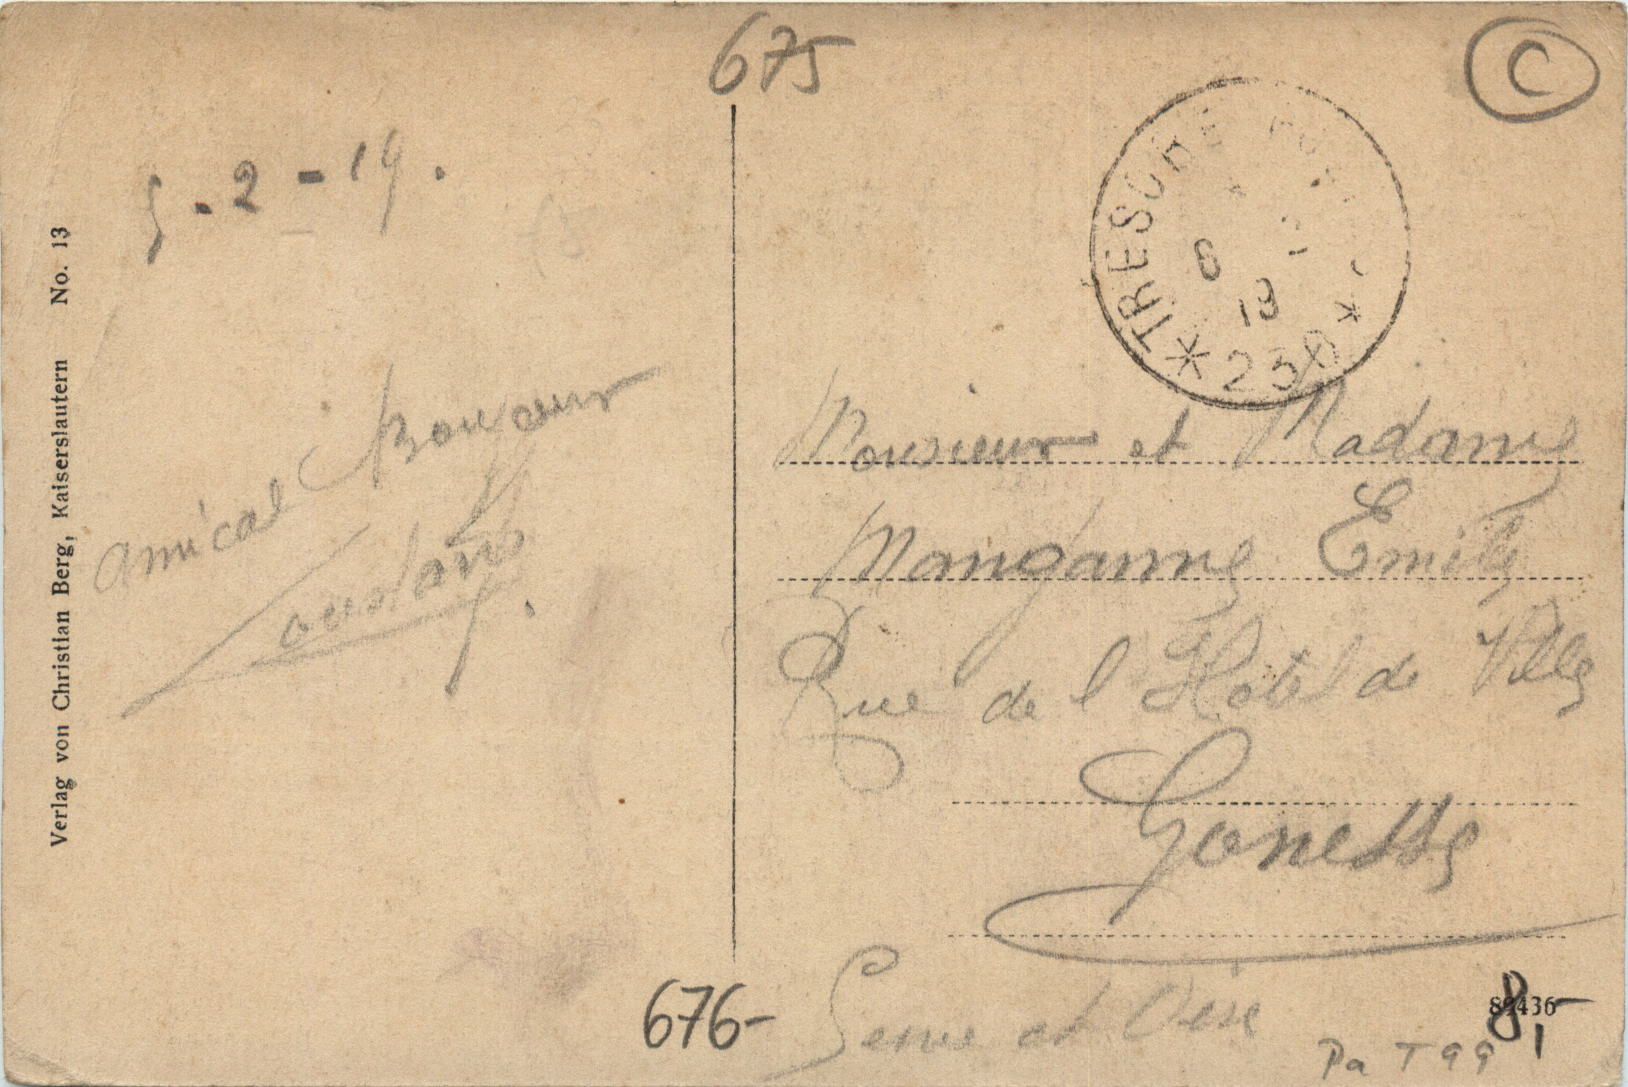 675
C
5.2-19.
TRESOR ET POSTES
6 2
19
* 230 *
Amical Bonjour
Monsieur et Madame
Emile
Rue de l'Hotel de Ville
Gonesse
Seine et Oise
Verlag von Christian Berg, Kaiserslautern No. 13
676-
89436
8,-
Pa T 99